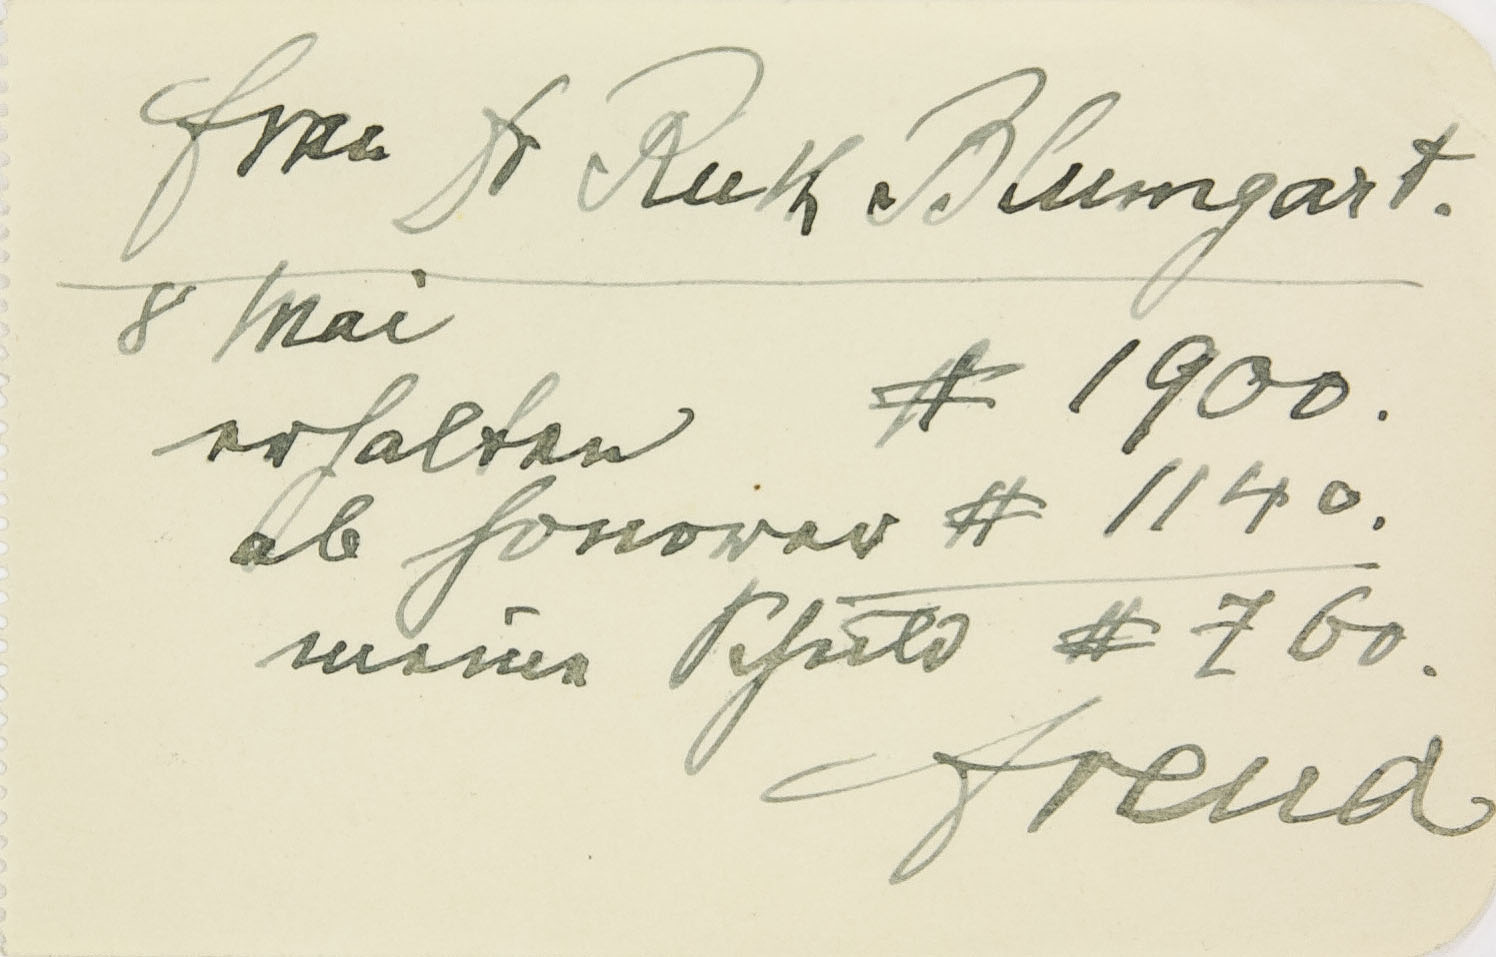 Frau Dr Ruth Blumgart.
8 Mai
erhalten # 1900.
ab Honorar # 1140.
meine Schuld # 760.
Freud